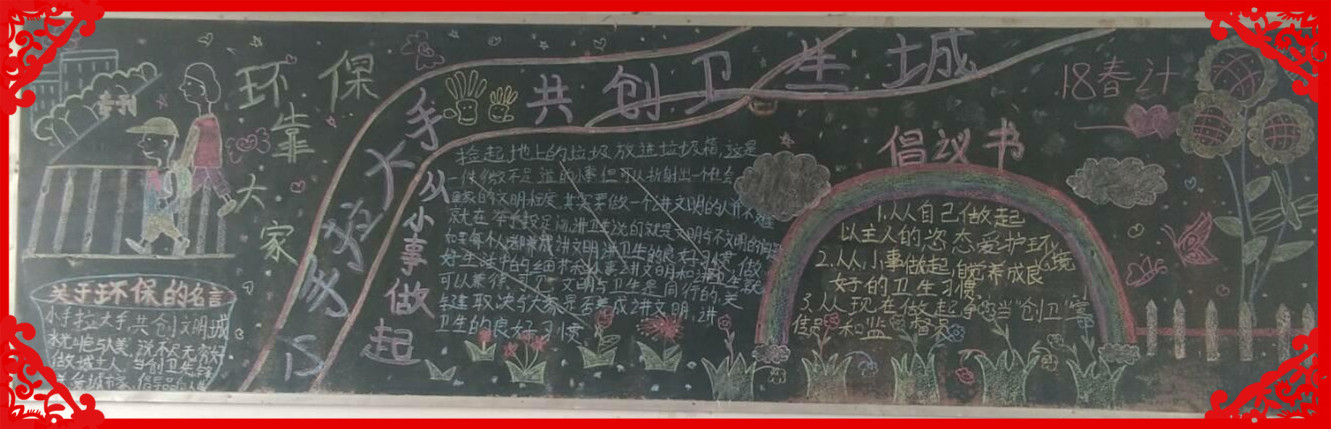 专刊
环保
靠
大
家
小手拉大手
共创卫生城
从小事做起
18春计
关于环保的名言
小手拉大手,共创文明城
做城主人
捡起地上的垃圾放进垃圾箱,这是
一件微不足道的小事但可以折射出一个社会
国家的文明程度,其实要做一个讲文明的人并不难
就在举手投足间,讲卫生说的就是文明与不文明的
如果每个人都养成讲文明,讲卫生的良好习惯,做
好生活中的细节
讲文明和讲卫生
可以兼得
文明与卫生是同行的,关
键取决与大家是否养成讲文明,讲
卫生的良好习惯
倡议书
1.从自己做起
以主人的姿态爱护环境
2.从小事做起,自觉养成良
好的卫生习惯
3.从现在做起争当"创卫"宣
传员和监督员